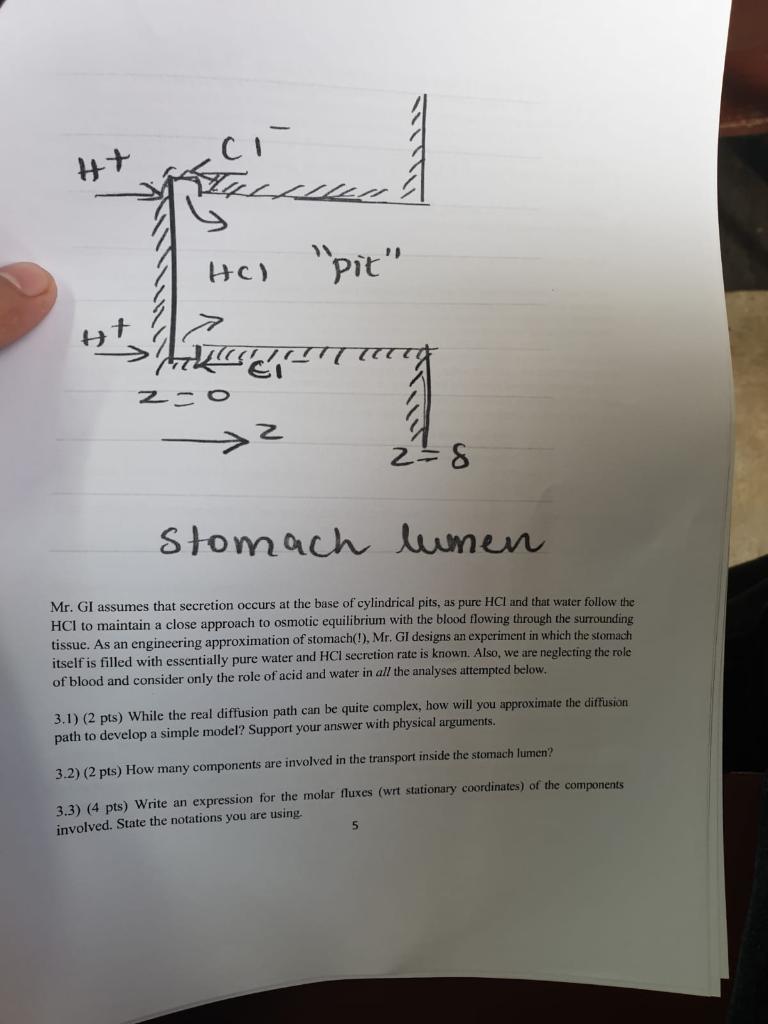 H+
Cl-
HCl "pit"
H+
Cl-
z=0
z
z=δ
stomach lumen
Mr. GI assumes that secretion occurs at the base of cylindrical pits, as pure HCl and that water follow the
HCl to maintain a close approach to osmotic equilibrium with the blood flowing through the surrounding
tissue. As an engineering approximation of stomach(!), Mr. GI designs an experiment in which the stomach
itself is filled with essentially pure water and HCl secretion rate is known. Also, we are neglecting the role
of blood and consider only the role of acid and water in all the analyses attempted below.
3.1) (2 pts) While the real diffusion path can be quite complex, how will you approximate the diffusion
path to develop a simple model? Support your answer with physical arguments.
3.2) (2 pts) How many components are involved in the transport inside the stomach lumen?
3.3) (4 pts) Write an expression for the molar fluxes (wrt stationary coordinates) of the components
involved. State the notations you are using.
5